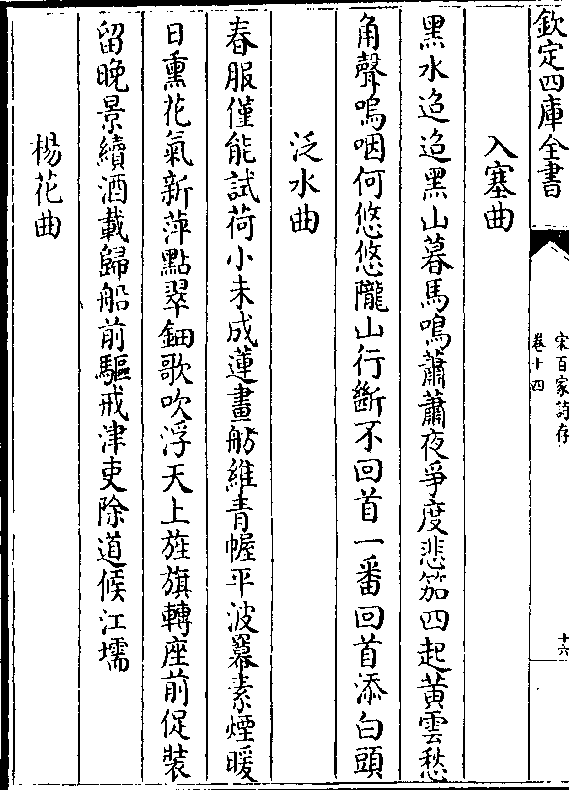 欽定四庫全書
宋百家詩存
卷十四
十六
入塞曲
黑水迢迢黑山暮馬鳴蕭蕭夜爭度悲笳四起黃雲愁
角聲嗚咽何悠悠隴山行斷不回首一番回首添白頭
泛水曲
春服僅能試荷小未成蓮畫舫維青幄平波羃素煙暖
日熏花氣新萍點翠鈿歌吹浮天上旌旗轉座前促裝
留晚景續酒載歸船前驅戒津吏除道候江壖
楊花曲